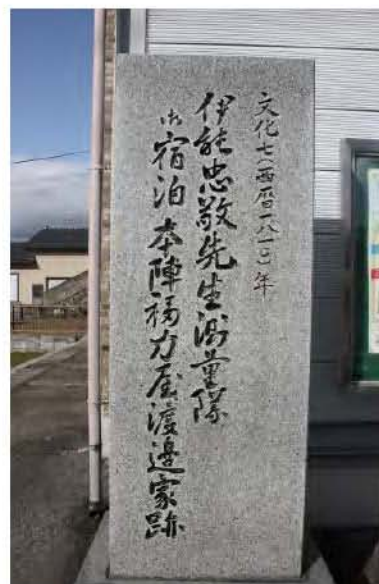 文化七(西暦一八一〇)年
伊能忠敬先生測量隊
御宿泊 本陣福力屋渡邉家跡